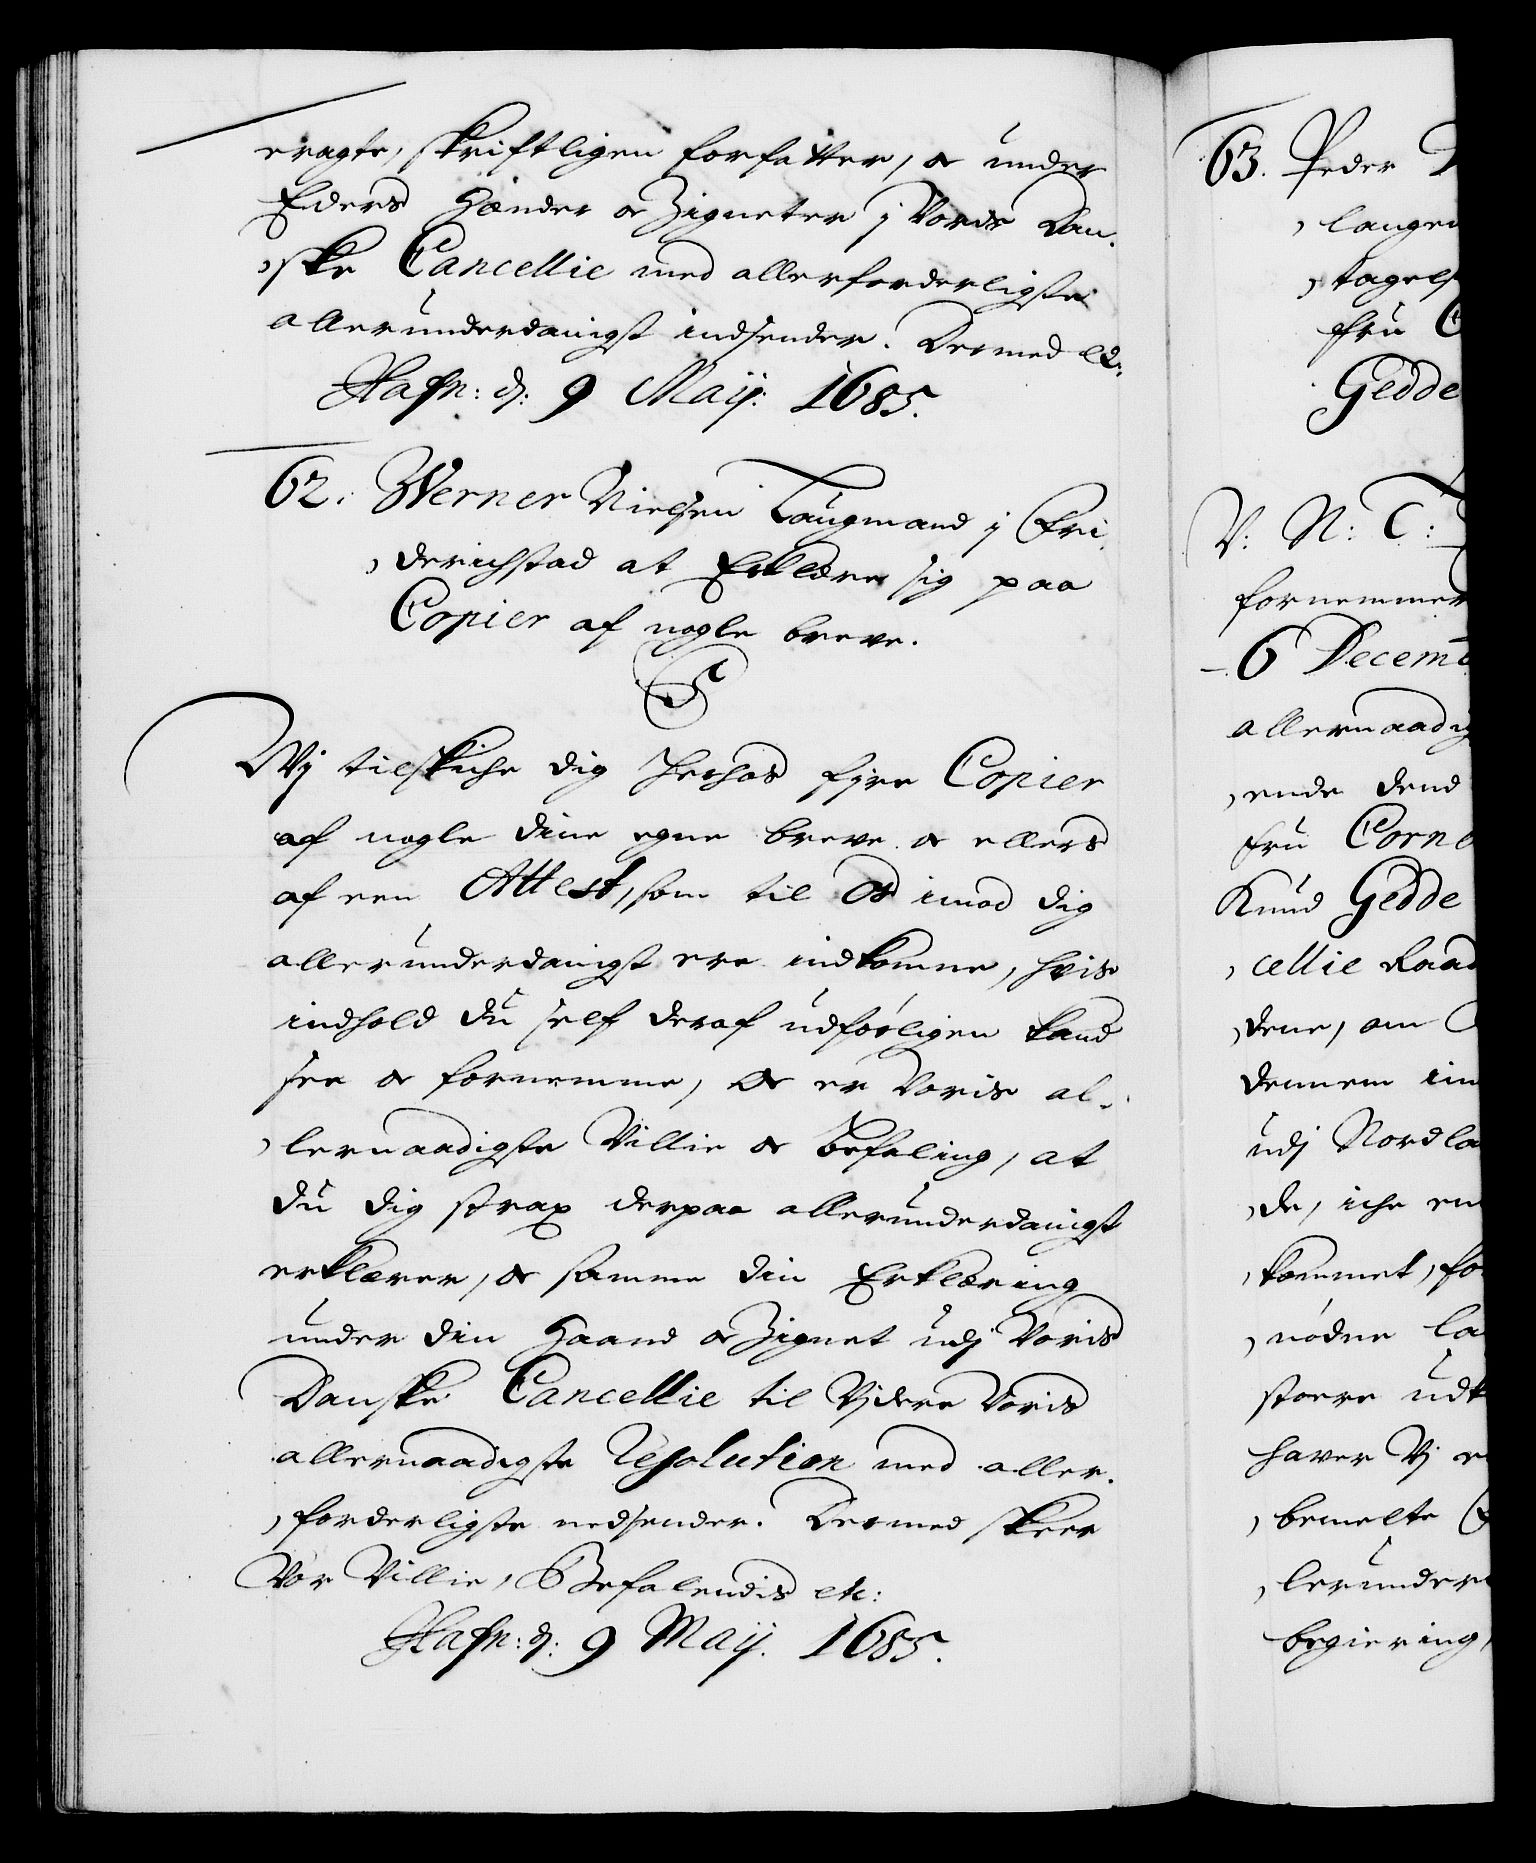 eragte, skriftligen forfatter, oc under
Eders Hænder oc Zigneter j Voris Dan-
ske Cancellie med allerforderligste
allerunderdanigst indsender. Dermed etc:
Hafn: d: 9 Maij: 1685.
62. Werner Nielsen Laugmand j Fri-
derichstad at Erklære sig paa
Copier af nogle breve.
C5
Wj tilskiche dig herhos fire Copier
af nogle dine egne breve oc ellers
af een Attest, som til Os imod dig
allerunderdanigst ere indkomne, hvis
indhold du self deraf udførligen kand
see oc fornemme, Oc er Voris al-
lernaadigste Villie oc befaling, at
du dig strax derpaa allerunderdanigst
erklærer, oc samme din Erklæring
under din Haand oc Zignet udj Voris
Danske Cancellie til Vjdere Voris
allernaadigste Resolution med aller-
forderligste nedsender. Dermed skeer
Vor Villie, Befalendis etc:
Hafn: d: 9 Maij. 1685.
63. Peder
langen
tagels
Fru C
Gedde
V: N: T:
fornemmer
6 Decemb
allernaadig
ende dend
Fru Corne
Knud Gedde
cellie Raad
dene, om
dennem im
udj Nordla
de, iche en
kommet, fo
nødne la
stoere udk
haver Vj
bemelte
lerunder
begiering,